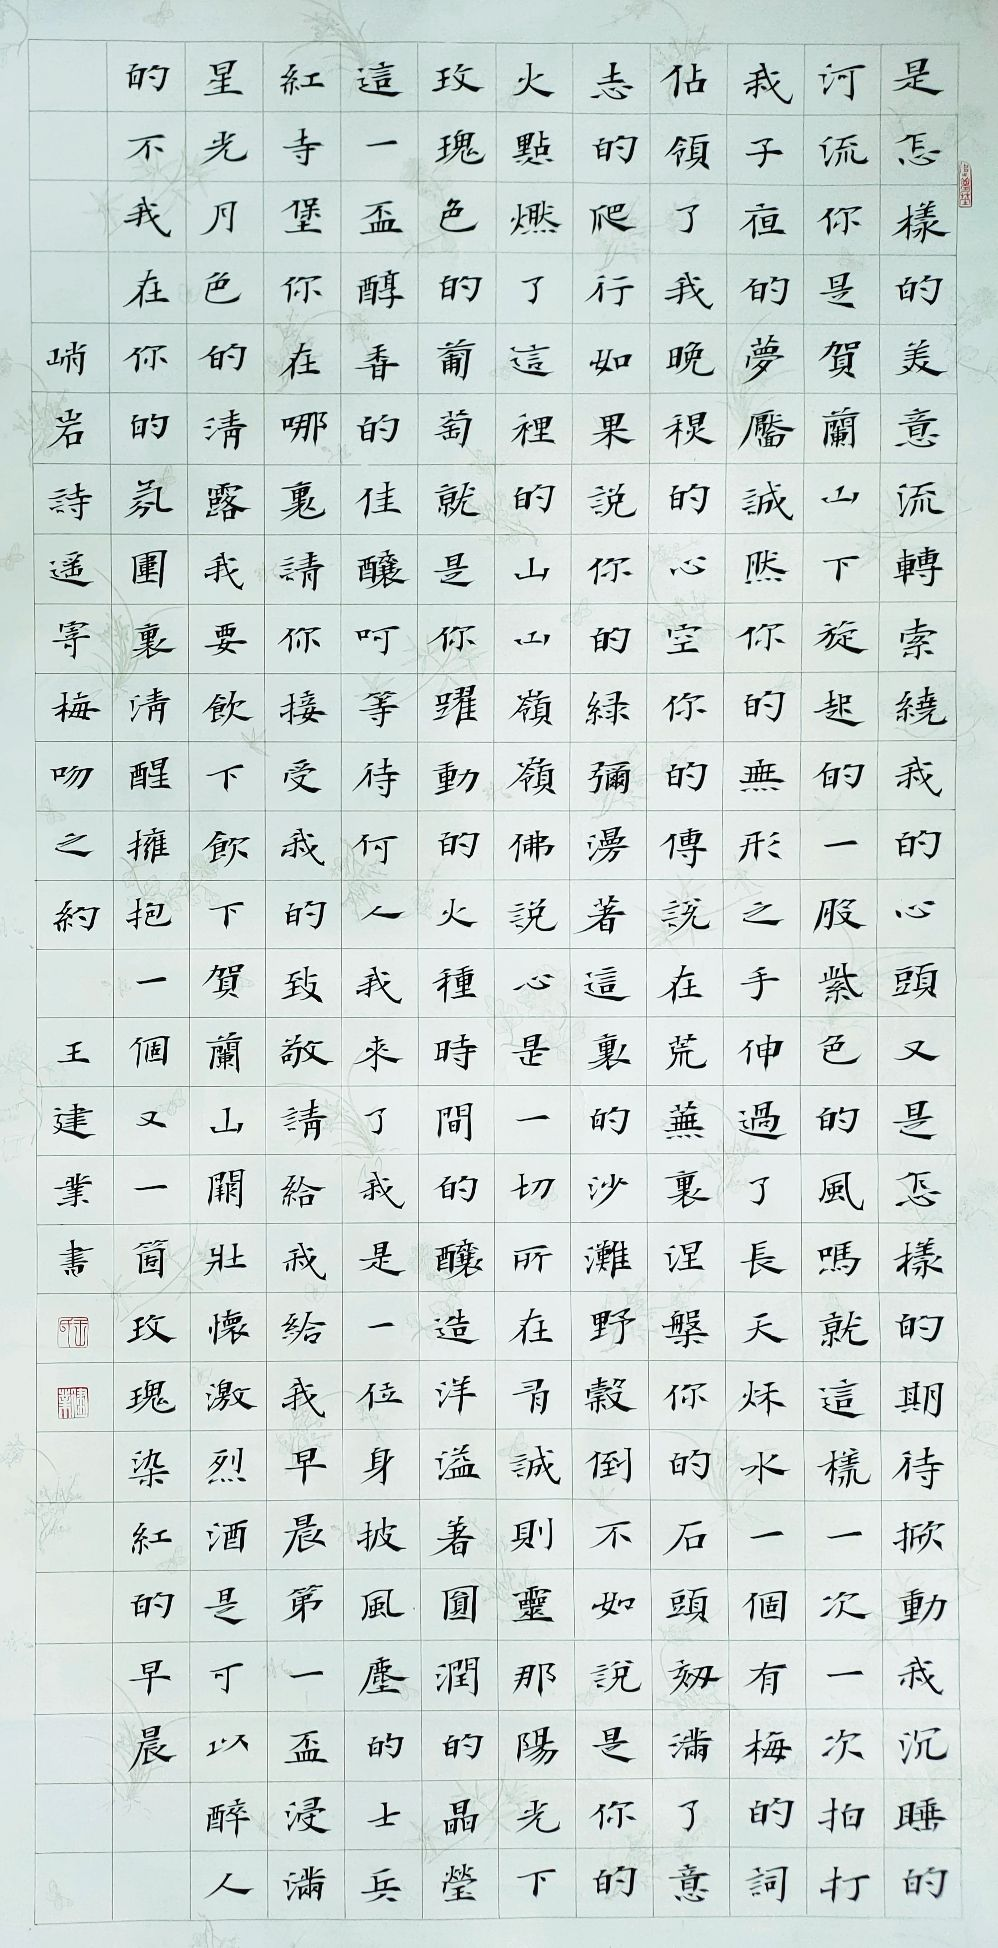 是怎樣的美意流轉索繞我的心頭又是怎樣的期待掀動我沉睡的
河流你是賀蘭山下旋起的一股紫色的風嗎就這樣一次一次拍打
我子夜的夢魘誠然你的無形之手伸過了長天秌水一個有梅的詞
佔領了我晚祱的心空你的傳說在荒蕪裏涅槃你的石頭刻滿了意
志的爬行如果說你的綠彌漫著這裏的沙灘野穀倒不如說是你的
火點燃了這裡的山山嶺嶺佛說心是一切所在有誠則靈那陽光下
玫瑰色的葡萄就是你躍動的火種時間的釀造洋溢著圓潤的晶瑩
這一盃醇香的佳釀呵等待何人我來了我是一位身披風塵的士兵
紅寺堡你在哪裏請你接受我的致敬請給我給我早晨第一盃浸滿
星光月色的清露我要飲下飲下賀蘭山闕壯懷激烈酒是可以醉人
的不我在你的氛圍裏清醒擁抱一個又一箇玫瑰染紅的早晨
峭岩詩遥寄梅吻之約 王建業書